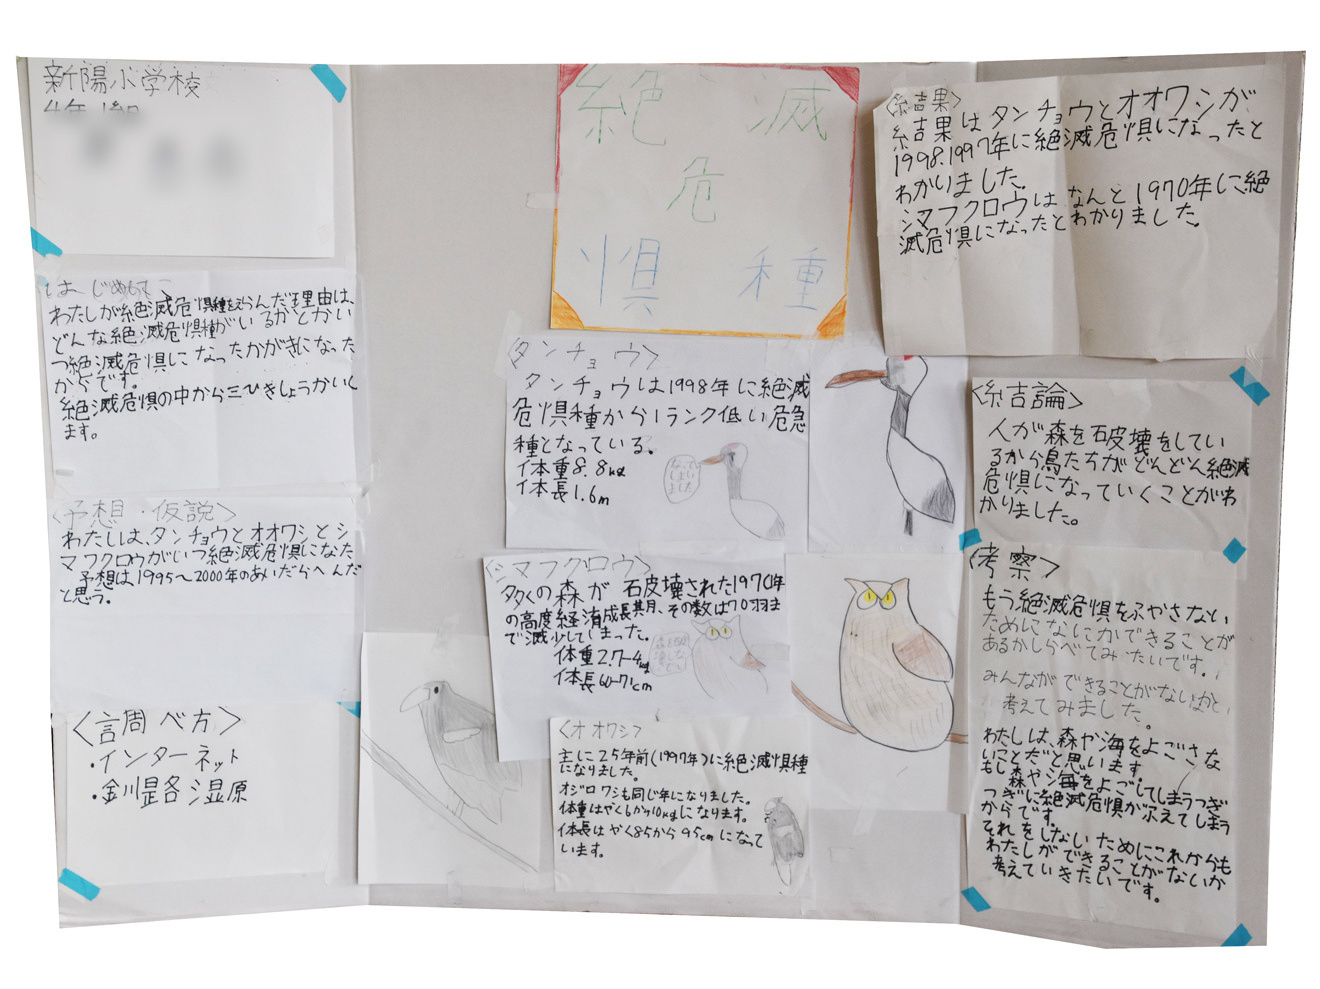 新陽小学校
4年1組
はじめに
わたしが絶滅危惧種をえらんだ理由は、
どんな絶滅危惧種がいるかとかい
つ絶滅危惧になったかがきになった
からです。
絶滅危惧の中から三びきしょうかいし
ます。
<予想・仮説>
わたしは、タンチョウとオオワシとシ
マフクロウがいつ絶滅危惧になた
予想は、1995~2000年のあいだらへんだ
と思う。
<調べ方>
・インターネット
・釧路湿原
絶滅
危
惧種
<タンチョウ>
タンチョウは1998年に絶滅
危惧種から1ランク低い危急
種となっている。
体重8.8kg
体長1.6m
なって
しまい
ました
<シマフクロウ>
多くの森が破壊された1970年
の高度経済成長其月、その数は70羽ま
で減少してしまった。
体重2.7-4kg
体長60-71cm
<オオワシ>
主に25年前(1997年)に絶滅惧種
になりました。
オジロワシも同じ年になりました。
体重はやく6から10kgになります。
体長はやく85から95cmになって
います。
<結果>
結果はタンチョウとオオワシが
1998.1997年に絶滅危惧になったと
わかりました。
シマフクロウはなんと1970年に絶
滅危惧になったとわかりました。
<結論>
人が森を破壊をしてい
るから鳥たちがどんどん絶滅
危惧になっていくことがわ
かりました。
<考察>
もう絶滅危惧をふやさない
ためになにかできることが
あるかしらべてみたいです。
みんなができることがないかと
考えてみました。
わたしは、森や海をよごさな
いことだと思います
もし森や海をよごしてしまうつぎ
つぎに絶滅危惧がふえてしまう
からです。
それをしないためにこれからも
わたしができることがないか
考えていきたいです。